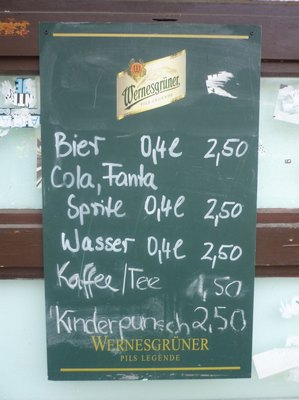 Wernesgrüner
PILS LEGENDE
Bier 0,4l 2,50
Cola, Fanta
Sprite 0,4l 2,50
Wasser 0,4l 2,50
Kaffee/Tee 1,50
Kinderpunsch 2,50
WERNESGRÜNER
PILS LEGENDE